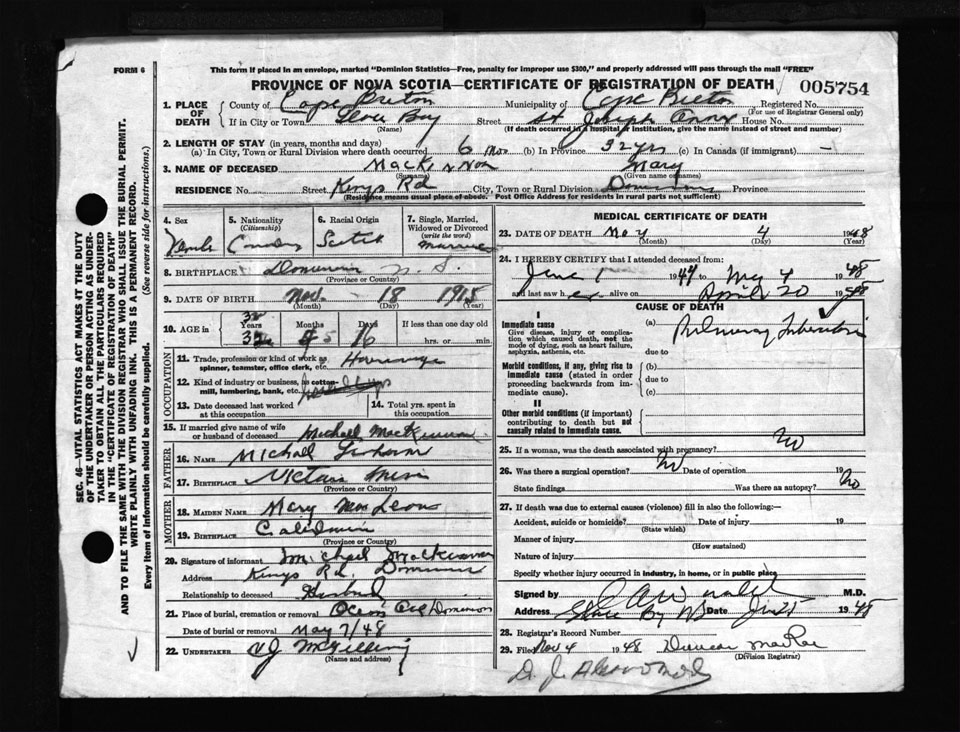 FORM 6
This form if placed in an envelope, marked "Dominion Statistics—Free, penalty for improper use $300," and properly addressed will pass through the mail "FREE"
PROVINCE OF NOVA SCOTIA—CERTIFICATE OF REGISTRATION OF DEATH
005754
SEC. 46—VITAL STATISTICS ACT MAKES IT THE DUTY
OF THE UNDERTAKER OR PERSON ACTING AS UNDER-
TAKER TO OBTAIN ALL THE PARTICULARS REQUIRED
IN THE "CERTIFICATE OF REGISTRATION OF DEATH"
AND TO FILE THE SAME WITH THE DIVISION REGISTRAR WHO SHALL ISSUE THE BURIAL PERMIT.
WRITE PLAINLY WITH UNFADING INK. THIS IS A PERMANENT RECORD.
Every item of Information should be carefully supplied. (See reverse side for instructions.)
1. PLACE OF DEATH County of Cape Breton Municipality of Cape Breton Registered No.
(For use of Registrar General only)
If in City or Town Glace Bay Street St Joseph Annx House No.
(Name) (If death occurred in a hospital or institution, give the name instead of street and number)
2. LENGTH OF STAY (in years, months and days)
(a) In City, Town or Rural Division where death occurred 6 mos (b) In Province 32 yrs (c) In Canada (if immigrant) —
3. NAME OF DECEASED Mary
(Surname) (Given name or names)
RESIDENCE No. Street Kings Rd City, Town or Rural Division Dominion Province
(Residence means usual place of abode. Post Office Address for residents in rural parts not sufficient)
4. Sex Female
5. Nationality (Citizenship)
6. Racial Origin Scotch
7. Single, Married, Widowed or Divorced (write the word) Married
8. BIRTHPLACE Dominion N. S.
(Province or Country)
9. DATE OF BIRTH Nov. 18 1915
(Month) (Day) (Year)
10. AGE in Years Months Days If less than one day old
32 5 16 hrs. or min.
OCCUPATION
11. Trade, profession or kind of work as spinner, teamster, office clerk, etc. Housewife
12. Kind of industry or business, as cotton-mill, lumbering, bank, etc.
13. Date deceased last worked at this occupation
14. Total yrs. spent in this occupation
15. If married give name of wife or husband of deceased Michael MacKinnon
FATHER
16. NAME Michael
17. BIRTHPLACE Victoria Mines
(Province or Country)
MOTHER
18. MAIDEN NAME Mary MacLeon
19. BIRTHPLACE Caledonia
(Province or Country)
20. Signature of informant Michael MacKinnon
Address Kings Rd, Dominion
Relationship to deceased Husband
21. Place of burial, cremation or removal Dominion
Date of burial or removal May 7/48
22. UNDERTAKER
(Name and address)
MEDICAL CERTIFICATE OF DEATH
23. DATE OF DEATH May 4 1948
(Month) (Day) (Year)
24. I HEREBY CERTIFY that I attended deceased from:
June 1 1947 to May 4 1948
and last saw her alive on April 20 19
CAUSE OF DEATH
I
Immediate cause
Give disease, injury or complication which caused death, not the mode of dying, such as heart failure, asphyxia, asthenia, etc.
(a) Pulmonary Tuberculosis
due to
Morbid conditions, if any, giving rise to immediate cause (stated in order proceeding backwards from immediate cause).
(b)
due to
(c)
II
Other morbid conditions (if important) contributing to death but not causally related to immediate cause.
25. If a woman, was the death associated with pregnancy? no
26. Was there a surgical operation? no Date of operation 19
State findings Was there an autopsy? no
27. If death was due to external causes (violence) fill in also the following:—
Accident, suicide or homicide? Date of injury 19
(State which)
Manner of injury
(How sustained)
Nature of injury
Specify whether injury occurred in industry, in home, or in public place
Signed by M.D.
Address Date 19
28. Registrar's Record Number
29. Filed Nov 4 1948 Duncan MacRae
(Division Registrar)
D. J.